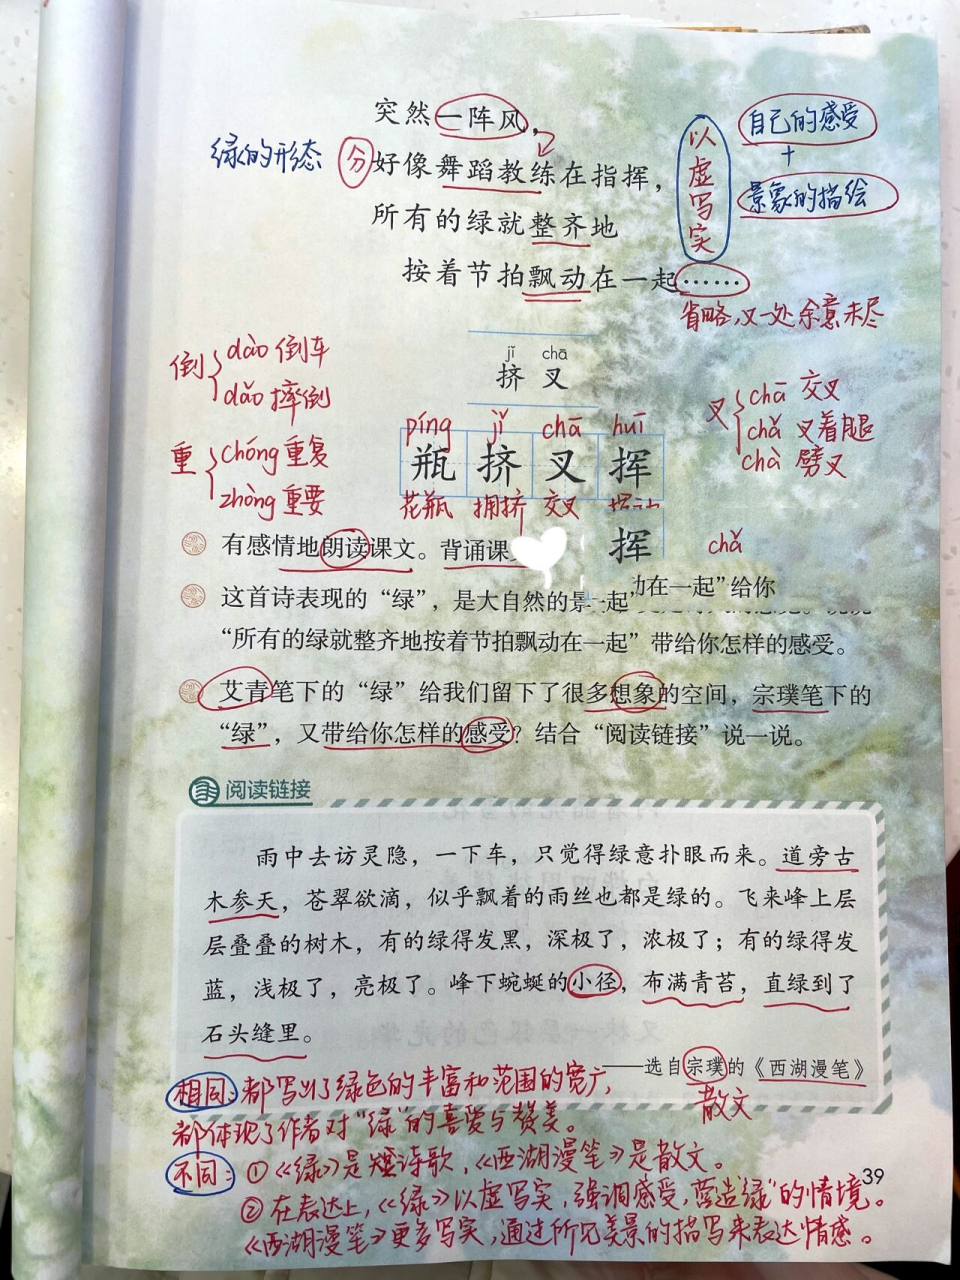 突然一阵风，
好像舞蹈教练在指挥，
所有的绿就整齐地
按着节拍飘动在一起……
绿的形态
分
以虚写实
自己的感受
+
景象的描绘
省略，又一处余意未尽
倒 dào 倒车
dǎo 摔倒
重 chóng 重复
zhòng 重要
jǐ chā
挤 叉
píng jǐ chā huī
瓶 挤 叉 挥
花瓶 拥挤 交叉
叉 chā 交叉
chǎ 叉着腿
chà 劈叉
挥 chǎ
有感情地朗读课文。背诵课
动在一起”给你
这首诗表现的“绿”，是大自然的景 一起
“所有的绿就整齐地按着节拍飘动在一起”带给你怎样的感受。
艾青笔下的“绿”给我们留下了很多想象的空间，宗璞笔下的
“绿”，又带给你怎样的感受？结合“阅读链接”说一说。
阅读链接
雨中去访灵隐，一下车，只觉得绿意扑眼而来。道旁古
木参天，苍翠欲滴，似乎飘着的雨丝也都是绿的。飞来峰上层
层叠叠的树木，有的绿得发黑，深极了，浓极了；有的绿得发
蓝，浅极了，亮极了。峰下蜿蜒的小径，布满青苔，直绿到了
石头缝里。
——选自宗璞的《西湖漫笔》
散文
相同：都写出了绿色的丰富和范围的宽广，
都体现了作者对“绿”的喜爱与赞美。
不同：①《绿》是短诗歌，《西湖漫笔》是散文。
39
②在表达上，《绿》以虚写实，强调感受，营造“绿”的情境。
《西湖漫笔》更多写实，通过所见美景的描写来表达情感。